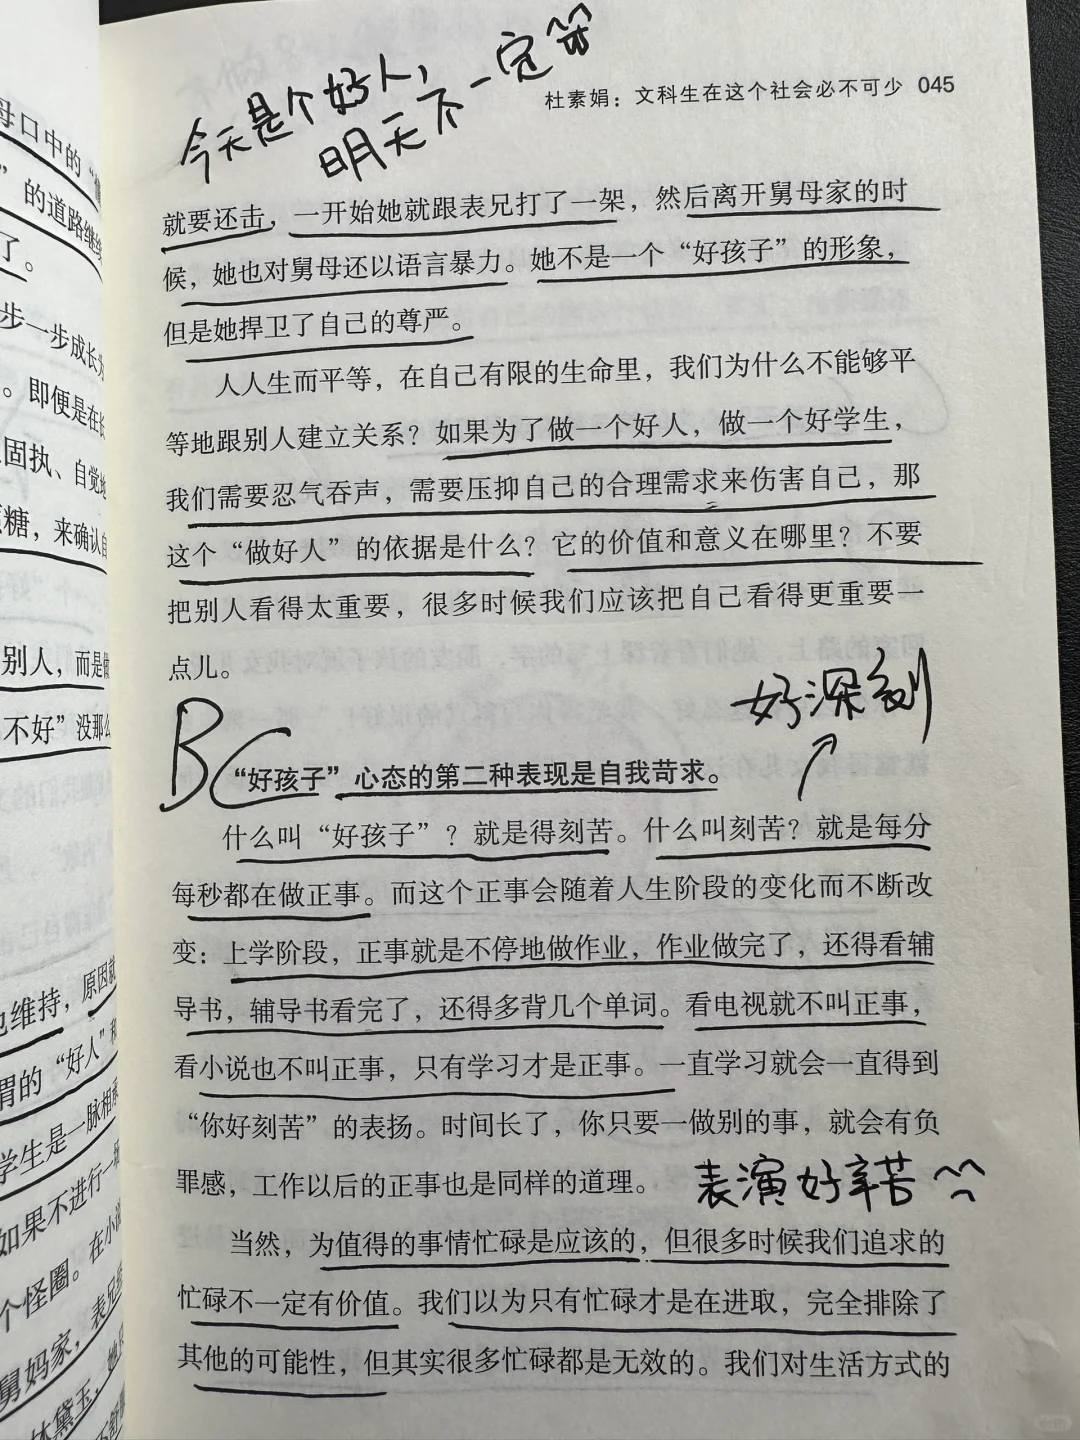 今天是个好人，
明天不一定
杜素娟：文科生在这个社会必不可少 045
就要还击，一开始她就跟表兄打了一架，然后离开舅母家的时
候，她也对舅母还以语言暴力。她不是一个“好孩子”的形象，
但是她捍卫了自己的尊严。
人人生而平等，在自己有限的生命里，我们为什么不能够平
等地跟别人建立关系？如果为了做一个好人，做一个好学生，
我们需要忍气吞声，需要压抑自己的合理需求来伤害自己，那
这个“做好人”的依据是什么？它的价值和意义在哪里？不要
把别人看得太重要，很多时候我们应该把自己看得更重要一
点儿。
好深刻
“好孩子”心态的第二种表现是自我苛求。
什么叫“好孩子”？就是得刻苦。什么叫刻苦？就是每分
每秒都在做正事。而这个正事会随着人生阶段的变化而不断改
变：上学阶段，正事就是不停地做作业，作业做完了，还得看辅
导书，辅导书看完了，还得多背几个单词。看电视就不叫正事，
看小说也不叫正事，只有学习才是正事。一直学习就会一直得到
“你好刻苦”的表扬。时间长了，你只要一做别的事，就会有负
罪感，工作以后的正事也是同样的道理。
表演好辛苦
当然，为值得的事情忙碌是应该的，但很多时候我们追求的
忙碌不一定有价值。我们以为只有忙碌才是在进取，完全排除了
其他的可能性，但其实很多忙碌都是无效的。我们对生活方式的
母口中的
”的道路继续
了。
步一步成长为
。即便是在
固执、自觉地
糖，来确认自
别人，而是
不好”没那么
也维持，原因就
谓的“好人”和
学生是一脉相承
如果不进行一
个怪圈。在小说
舅妈家，表兄
林黛玉，她